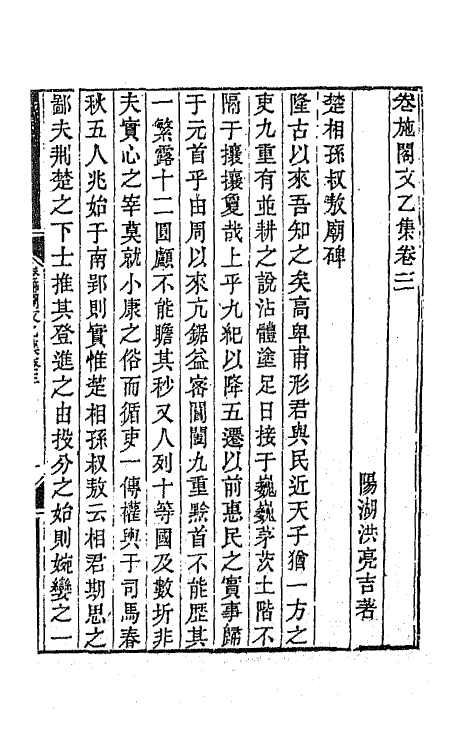 卷施閣文乙集卷三
陽湖洪亮吉著
楚相孫叔敖廟碑
隆古以來吾知之矣高卑甫形君與民近天子猶一方之
吏九重有並耕之說沾體塗足日接于巍巍茅茨土階不
隔于攘攘夐哉上乎九紀以降五遷以前惠民之實事歸
于元首乎由周以來亢鋸益密閶闔九重黥首不能歴其
一繁露十二圓顱不能瞻其秒又人列十等國及數圻非
夫實心之宰莫就小康之俗而循吏一傳權輿于司馬春
秋五人兆始于南郢則實惟楚相孫叔敖云相君期思之
鄙夫荆楚之下士推其登進之由投分之始則婉孌之一